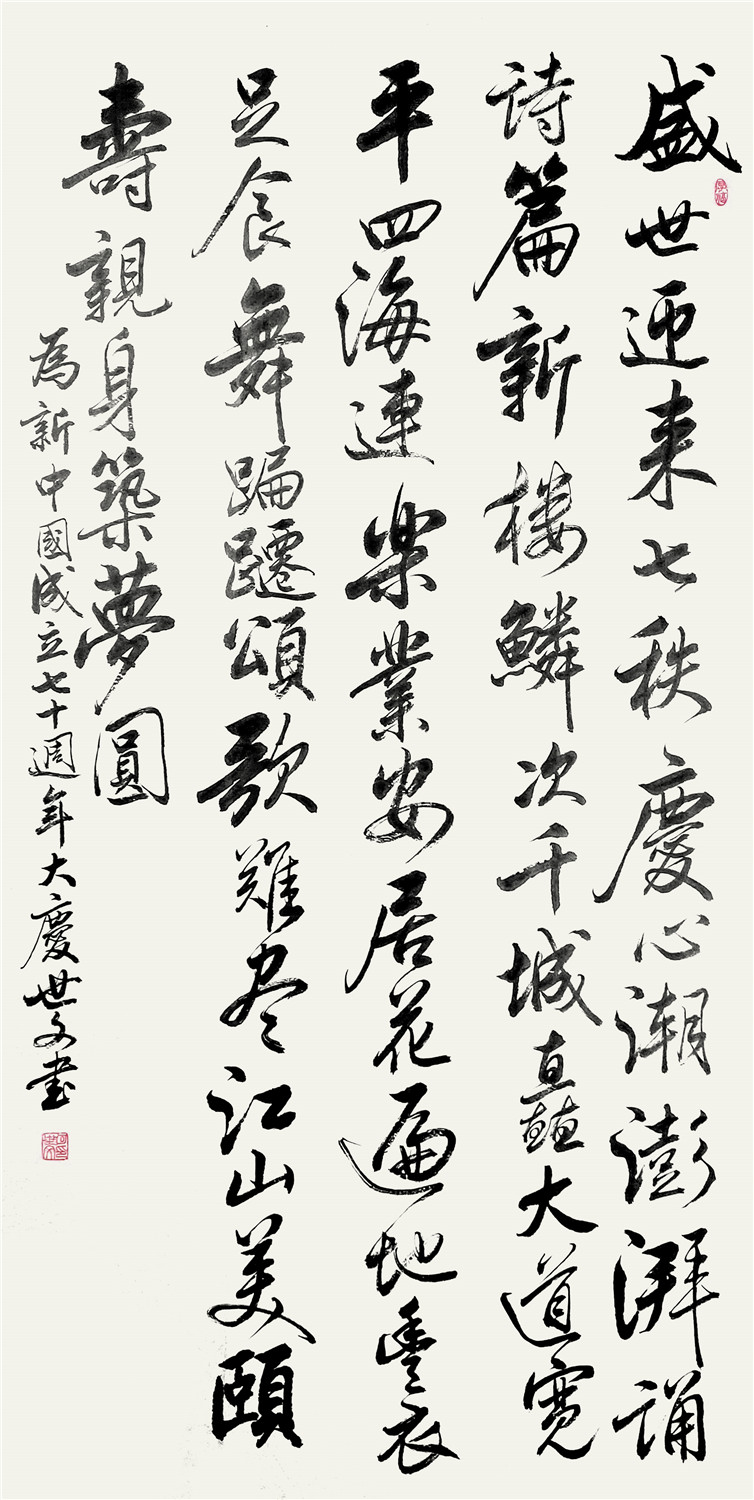 盛世迎来七秩慶心潮澎湃诵
诗篇新楼鱗次千城矗大道寬
平四海連楽業安居花遍地豐衣
足食舞蹁躚頌歌難尽江山美頤
壽親身築夢圓
為新中國成立七十週年大慶世文書